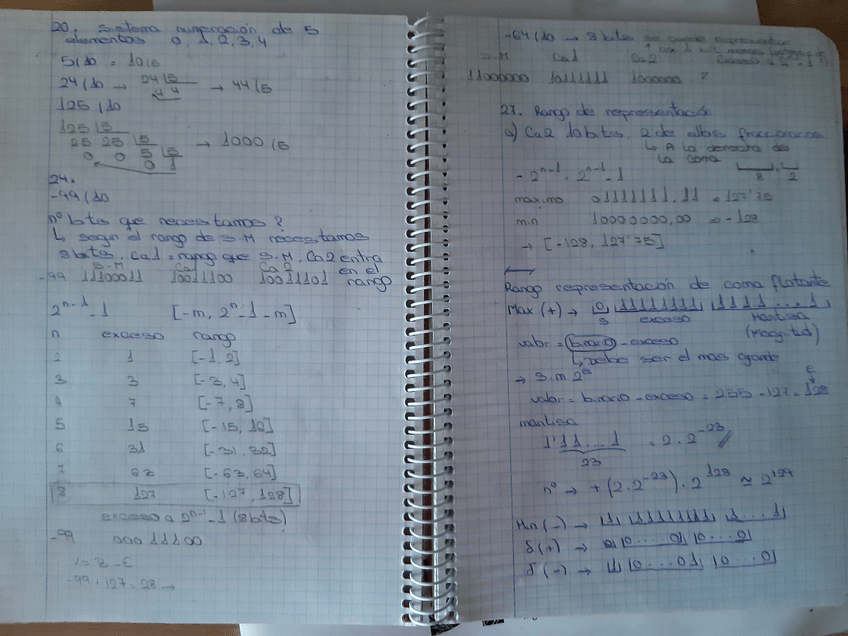 20. Sistema numeración de 5
elementos 0, 1, 2, 3, 4
5(10 = 10(5
24(10 → 24 |5 → 44(5
4 4
125(10
125 |5
25 25 |5 → 1000(5
0 0 5 |5
0 1
24.
-99(10
nº bits que necesitamos?
↳ según el rango de S.M necesitamos
8 bits, Ca1 = rango que S.M, Ca2 entra
en el
rango
S.M Ca1 Ca2
-99 11100011 10011100 10011101
2^n-1 -1 [-m, 2^n -1 -m]
n exceso rango
2 1 [-1, 2]
3 3 [-3, 4]
4 7 [-7, 8]
5 15 [-15, 16]
6 31 [-31, 32]
7 63 [-63, 64]
8 127 [-127, 128]
exceso a 2^n-1 -1 (8 bits)
-99 00011100
V = B - E
-99 + 127 = 28 →
-64(10 → 8 bits
S.M Ca1 Ca2
11000000 1011111 1000000
27. Rango de representación
a) Ca2 10 bits, 2 de ellos fraccionarios
↳ A la derecha de
la coma
8 2
-2^n-1, 2^n-1 -1
maximo 01111111,11 = 127'75
min 10000000,00 = -128
→ [-128, 127'75]
Rango representación de coma flotante
Max (+) → 0 11111111 1111...1
S exceso Mantisa
(Magnitud)
valor = binario - exceso
↳ Debe ser el mas grande
→ S.m 2^e
e
valor = binario - exceso = 255 - 127 = 128
mantisa
1'11...1 = 2-2^-23
23
nº → +(2-2^-23) · 2^128 ≃ 2^129
Min (-) → 1 11111111 1...1
δ (+) → 0 0...0 0...0
δ (-) → 1 0...01 0...0